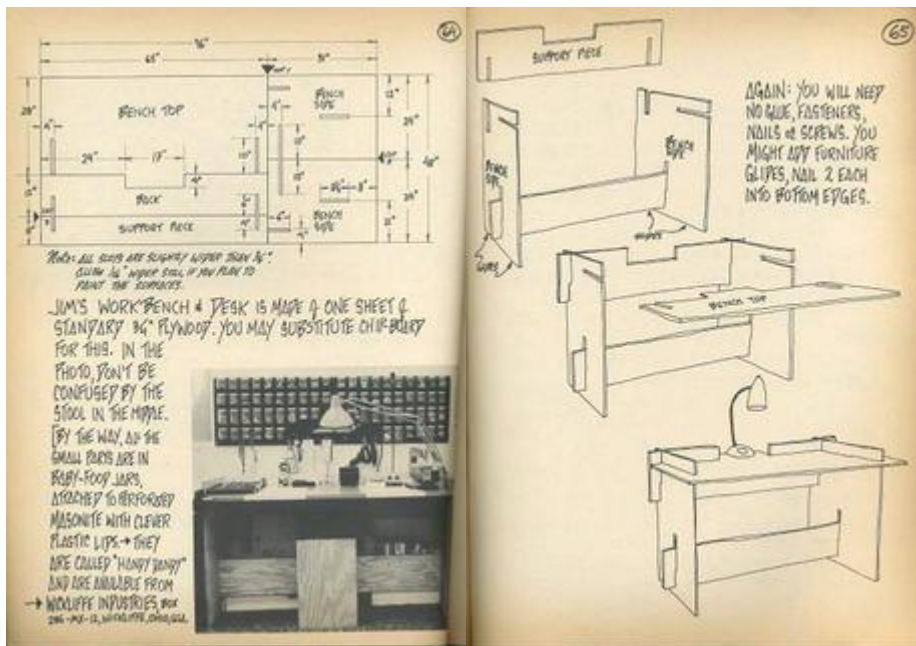 64
96"
65"
31"
BENCH TOP
BENCH SIDE
28"
4"
24"
17"
10"
12"
24"
48"
BACK
SUPPORT PIECE
BENCH SIDE
NOTE: ALL SLOTS ARE SLIGHTLY WIDER THAN 3/4".
ALLOW 1/16" WIDER STILL IF YOU PLAN TO
PAINT THE SURFACES.
JIM'S WORK BENCH & DESK IS MADE OF ONE SHEET OF
STANDARD 3/4" PLYWOOD. YOU MAY SUBSTITUTE CHIP-BOARD
FOR THIS. IN THE
PHOTO, DON'T BE
CONFUSED BY THE
STOOL IN THE MIDDLE.
[BY THE WAY, ALL THE
SMALL PARTS ARE IN
BABY-FOOD JARS,
ATTACHED TO PERFORATED
MASONITE WITH CLEVER
PLASTIC LIPS. → THEY
ARE CALLED "HANDY DANDY"
AND ARE AVAILABLE FROM
→ WICKLIFFE INDUSTRIES, BOX
286-MX-12, WICKLIFFE, OHIO, USA.
65
SUPPORT PIECE
AGAIN: YOU WILL NEED
NO GLUE, FASTENERS,
NAILS or SCREWS. YOU
MIGHT ADD FURNITURE
GLIDES, NAIL 2 EACH
INTO BOTTOM EDGES.
BENCH SIDE
BENCH SIDE
GLIDES
BENCH TOP